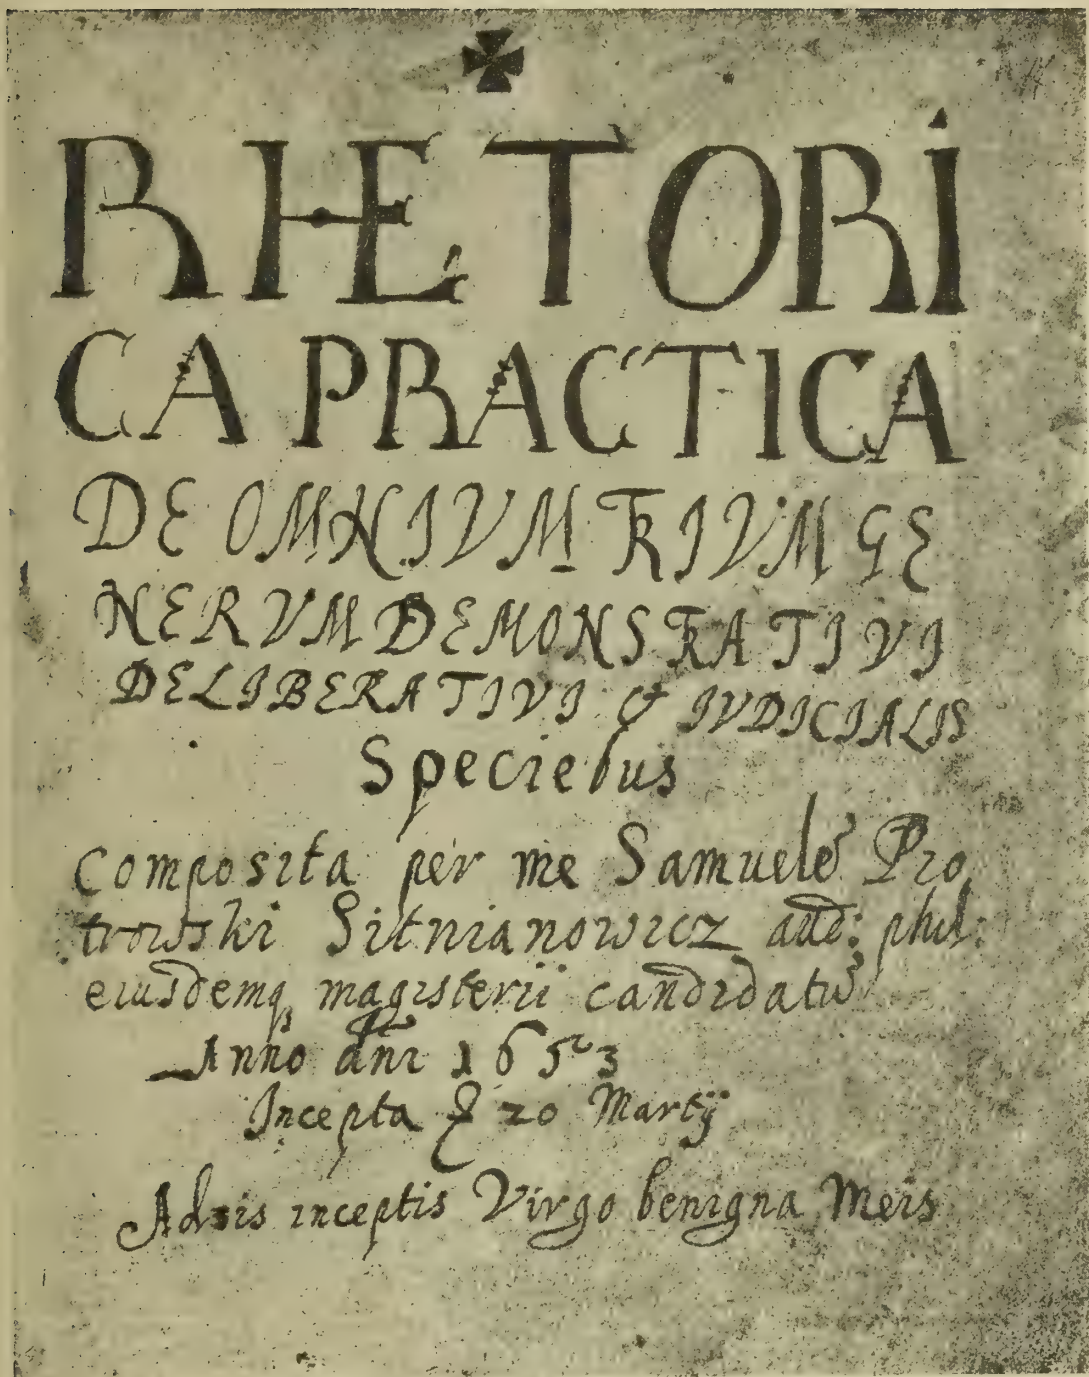 RHETORI
CA PRACTICA
DE OMNIVM TRIVM GE
NERVM DEMONSTRATIVI
DELIBERATIVI & IVDICIALIS
Speciebus
Composita per me Samuelē Pio
trowski Sitnianowicz aud: phil:
eiusdemq magisterii candidatū
Anno dni 1653
Incepta 20 Martij
Adsis inceptis Virgo benigna Meis